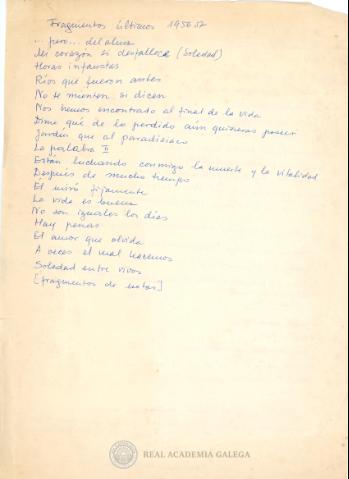 Fragmentos últimos 1956 57
... pero... del alma
Mi corazón si desfallece (Soledad)
Horas infaustas
Ríos que fueron antes
No te mienten si dicen
Nos hemos encontrado al final de la vida
Dime qué de lo perdido aún quisieras poseer
Jardín que al paradisiaco
La palabra II
Están luchando conmigo la muerte y la vitalidad
Después de mucho tiempo
Él miró fijamente
La vida es buena
No son iguales los días
Hay penas
El amor que olvida
A veces el mal hacemos
Soledad entre vivos
[fragmentos de notas]
REAL ACADEMIA GALEGA